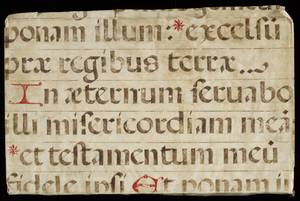 ponam illum: * excelsū
præ regibus terræ...
In æternum seruabo
illi misericordiam meā
* et testamentum meū
fidele ipsi Et ponam i